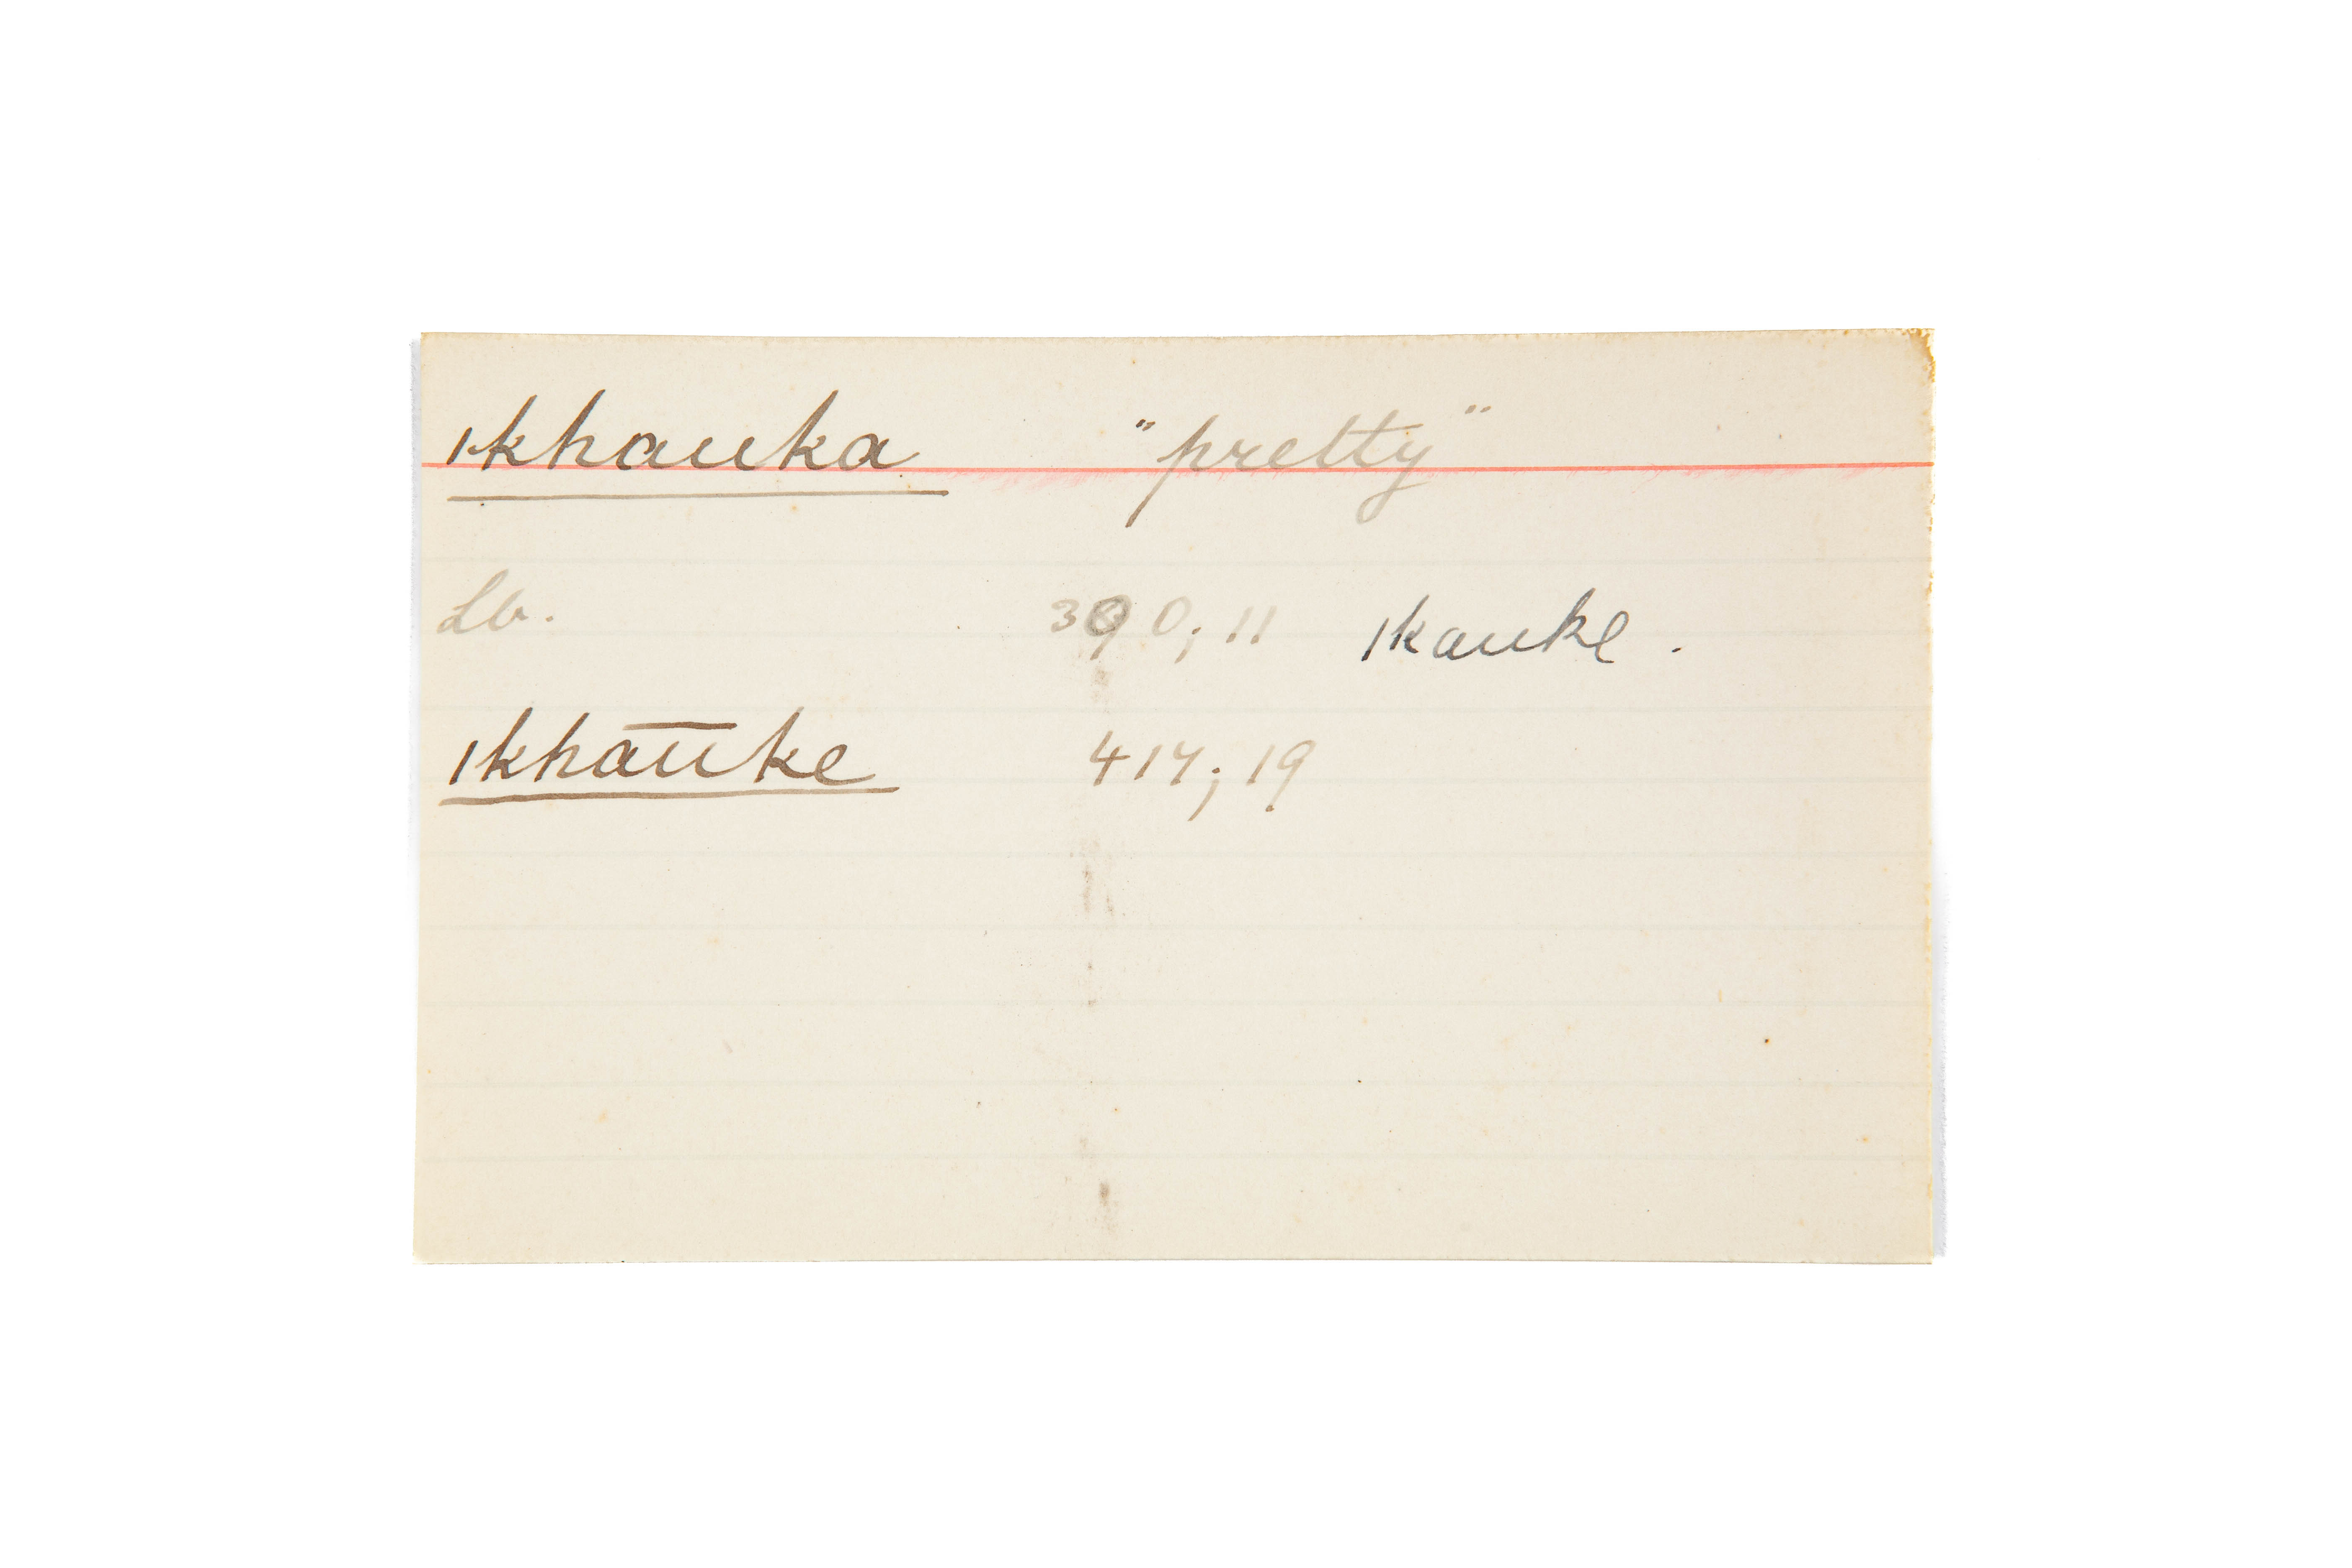 ǀkhauka "pretty"
Lb. 390; 11 ǀkauke.
ǀkha͞uke 417; 19